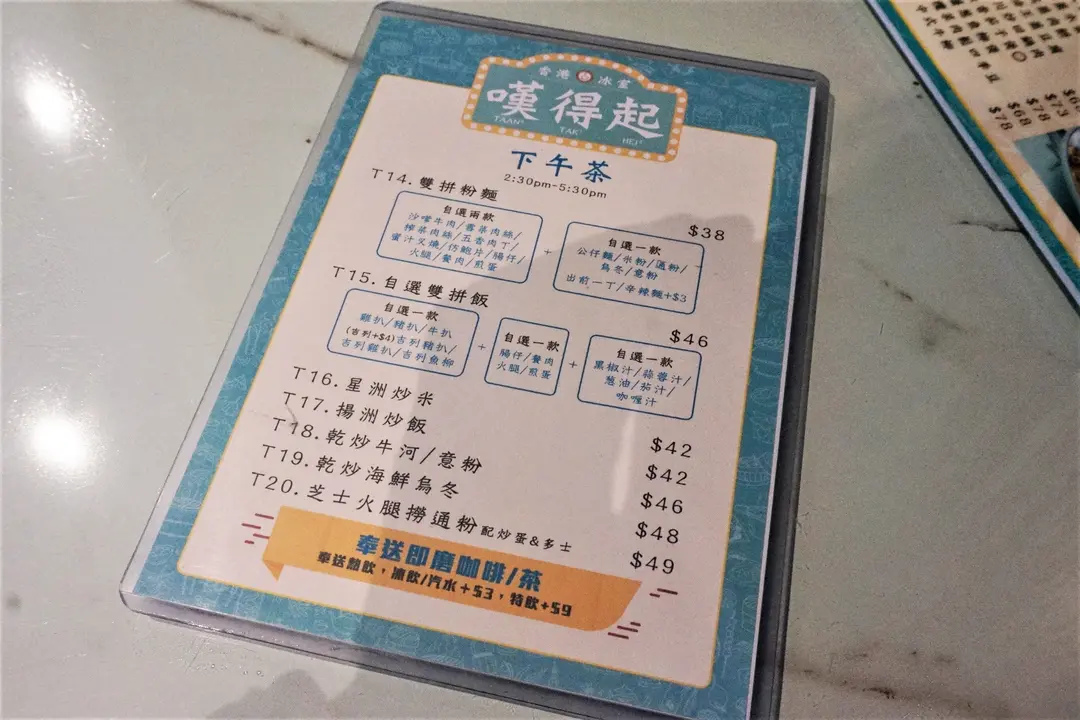 香港 冰室
嘆得起
TAAN³ TAK¹ HEI²
下午茶
2:30pm-5:30pm
T14. 雙拼粉麵 $38
自選兩款
沙嗲牛肉/雪菜肉絲/
榨菜肉絲/五香肉丁/
蜜汁叉燒/仿鮑片/腸仔/
火腿/餐肉/煎蛋
+
自選一款
公仔麵/米粉/通粉/
烏冬/意粉
出前一丁/辛辣麵+$3
T15. 自選雙拼飯 $46
自選一款
雞扒/豬扒/牛扒
(吉列+$4)吉列豬扒/
吉列雞扒/吉列魚柳
+
自選一款
腸仔/餐肉
火腿/煎蛋
+
自選一款
黑椒汁/蒜蓉汁/
葱油/茄汁/
咖喱汁
T16. 星洲炒米 $42
T17. 揚洲炒飯 $42
T18. 乾炒牛河/意粉 $46
T19. 乾炒海鮮烏冬 $48
T20. 芝士火腿撈通粉配炒蛋&多士 $49
奉送即磨咖啡/茶
奉送熱飲，凍飲/汽水+$3，特飲+$9
$73
$78
$68
$78